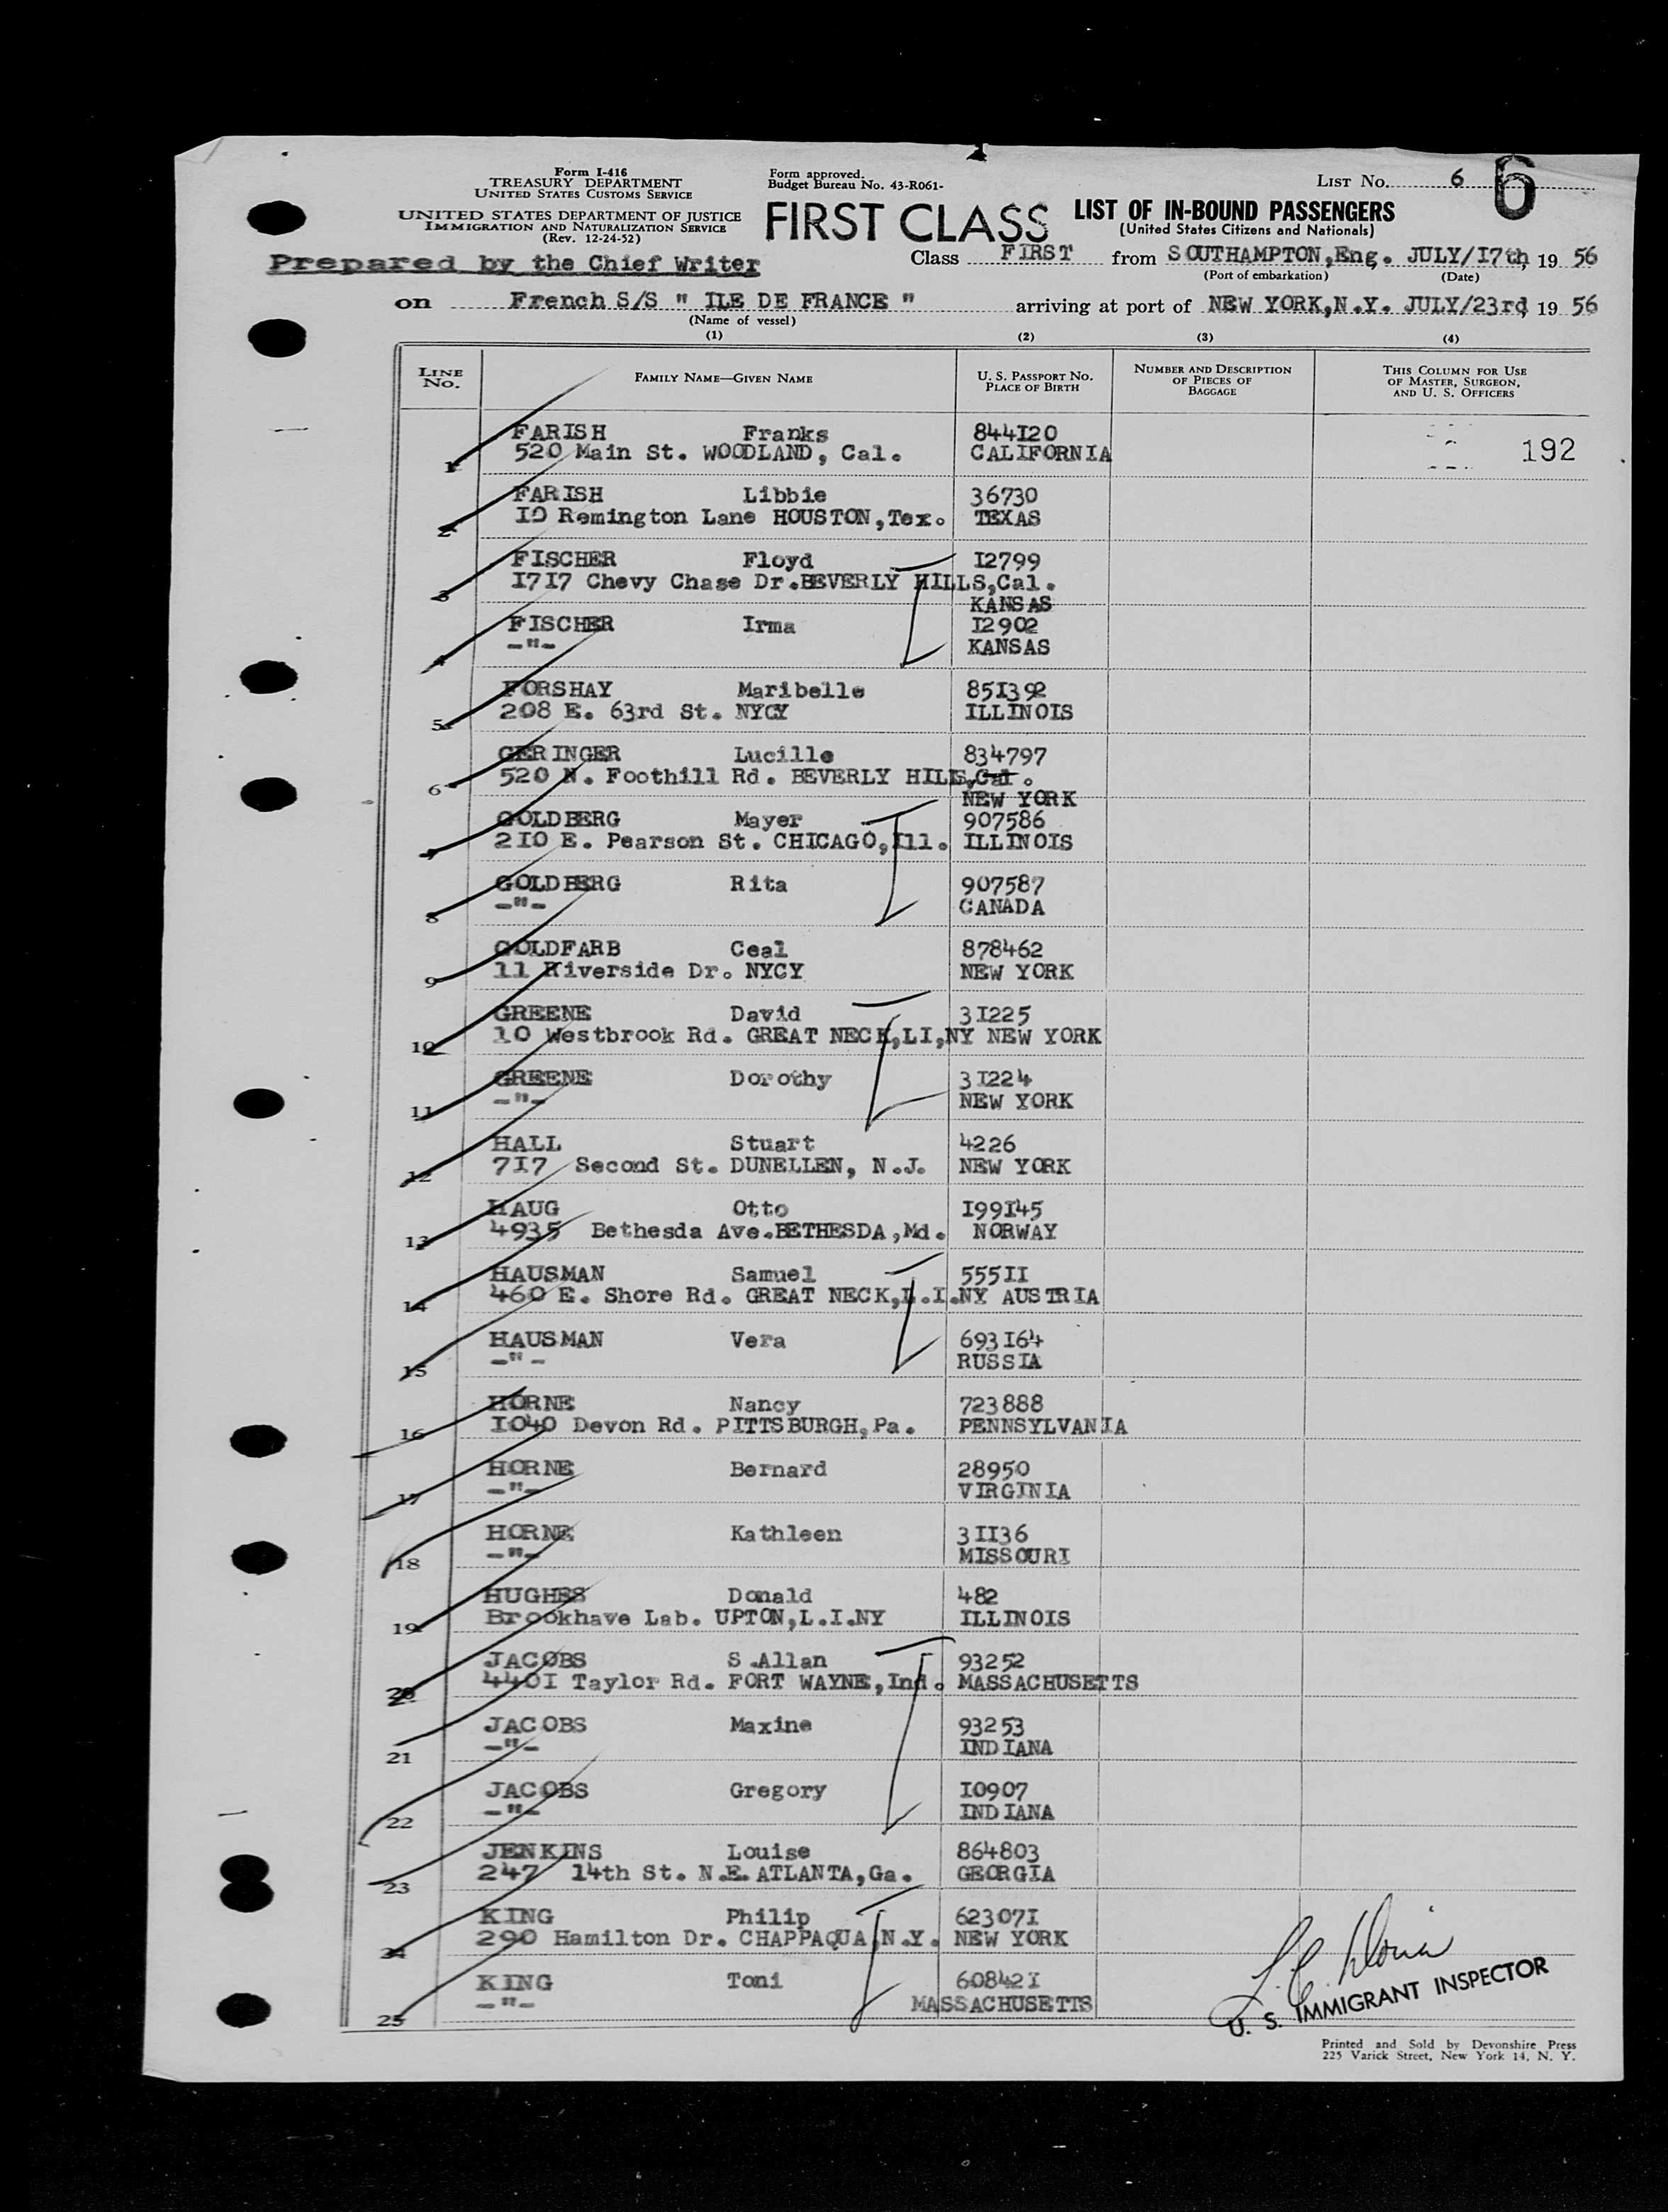 Form I-416
TREASURY DEPARTMENT
UNITED STATES CUSTOMS SERVICE
UNITED STATES DEPARTMENT OF JUSTICE
IMMIGRATION AND NATURALIZATION SERVICE
(Rev. 12-24-52)
Form approved.
Budget Bureau No. 43-R061-
LIST No. 6 6
FIRST CLASS LIST OF IN-BOUND PASSENGERS
(United States Citizens and Nationals)
Prepared by the Chief Writer
Class FIRST from SOUTHAMPTON,Eng. JULY/I7th 19 56
(Port of embarkation) (Date)
on French S/S " ILE DE FRANCE " arriving at port of NEW YORK,N.Y. JULY/23rd 19 56
(Name of vessel)
(1) (2) (3) (4)
LINE No. FAMILY NAME—GIVEN NAME U. S. PASSPORT No. PLACE OF BIRTH NUMBER AND DESCRIPTION OF PIECES OF BAGGAGE THIS COLUMN FOR USE OF MASTER, SURGEON, AND U. S. OFFICERS
FARISH Franks 844I20
1 520 Main St. WOODLAND, Cal. CALIFORNIA 192
FARISH Libbie 36730
2 IO Remington Lane HOUSTON,Tex. TEXAS
FISCHER Floyd I2799
3 I7I7 Chevy Chase Dr.BEVERLY HILLS,Cal.
KANSAS
FISCHER Irma I2902
4 -"- KANSAS
FORSHAY Maribelle 85I392
5 208 E. 63rd St. NYCY ILLINOIS
GERINGER Lucille 834797
6 520 N. Foothill Rd. BEVERLY HILLS,Cal.
NEW YORK
GOLDBERG Mayer 907586
7 2IO E. Pearson St. CHICAGO,Ill. ILLINOIS
GOLDBERG Rita 907587
8 -"- CANADA
GOLDFARB Ceal 878462
9 11 Riverside Dr. NYCY NEW YORK
GREENE David 3I225
10 10 Westbrook Rd. GREAT NECK,LI,NY NEW YORK
GREENE Dorothy 3I224
11 -"- NEW YORK
HALL Stuart 4226
12 7I7 Second St. DUNELLEN, N.J. NEW YORK
HAUG Otto I99I45
13 4935 Bethesda Ave.BETHESDA,Md. NORWAY
HAUSMAN Samuel 555II
14 460 E. Shore Rd. GREAT NECK,L.I.NY AUSTRIA
HAUSMAN Vera 693I64
15 -"- RUSSIA
HORNE Nancy 723888
16 I040 Devon Rd. PITTSBURGH,Pa. PENNSYLVANIA
HORNE Bernard 28950
17 -"- VIRGINIA
HORNE Kathleen 3II36
18 -"- MISSOURI
HUGHES Donald 482
19 Brookhave Lab. UPTON,L.I.NY ILLINOIS
JACOBS S.Allan 93252
20 440I Taylor Rd. FORT WAYNE,Ind. MASSACHUSETTS
JACOBS Maxine 93253
21 -"- INDIANA
JACOBS Gregory I0907
22 -"- INDIANA
JENKINS Louise 864803
23 247 14th St. N.E. ATLANTA,Ga. GEORGIA
KING Philip 62307I
24 290 Hamilton Dr. CHAPPAQUA,N.Y. NEW YORK
KING Toni 60842I
25 -"- MASSACHUSETTS
U. S. IMMIGRANT INSPECTOR
Printed and Sold by Devonshire Press
225 Varick Street, New York 14, N. Y.